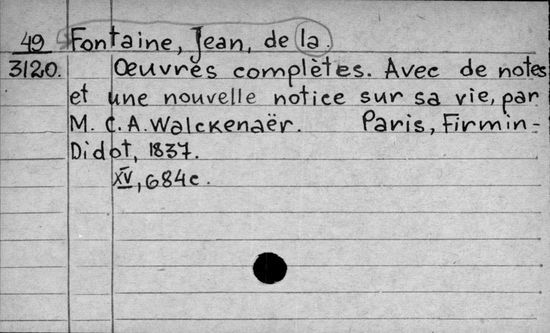 49 Fontaine, Jean, de la.
3120. Œuvres complètes. Avec de notes
et une nouvelle notice sur sa vie, par
M. C. A. Walckenaër. Paris, Firmin-
Didot, 1837.
XV, 684c.